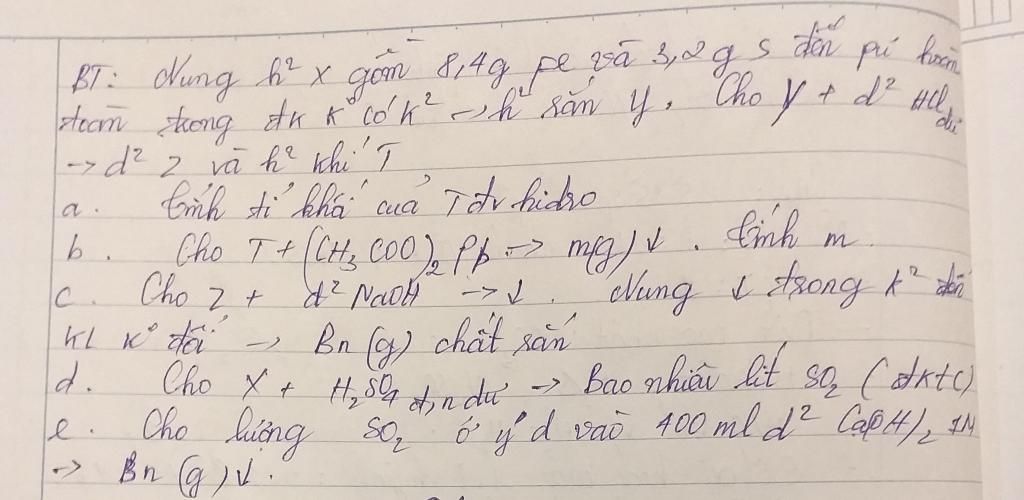 BT: Nung h² X gồm 8,4g Fe và 3,2g S đến pứ hoàn
toàn trong đk k⁰ có k² → h² rắn Y. Cho Y + d² HCl dư
→ d² Z và h² khí T
a. Tính tỉ khối của T đv hidro
b. Cho T + (CH₃COO)₂Pb → m(g)↓. Tính m
c. Cho Z + d² NaOH → ↓. Nung ↓ trong k² đến
KL k⁰ đổi → Bn (g) chất rắn
d. Cho X + H₂SO₄ đ,n dư → Bao nhiêu lít SO₂ (đktc)
e. Cho lượng SO₂ ở ý d vào 400 ml d² Ca(OH)₂ 1M
→ Bn (g)↓.